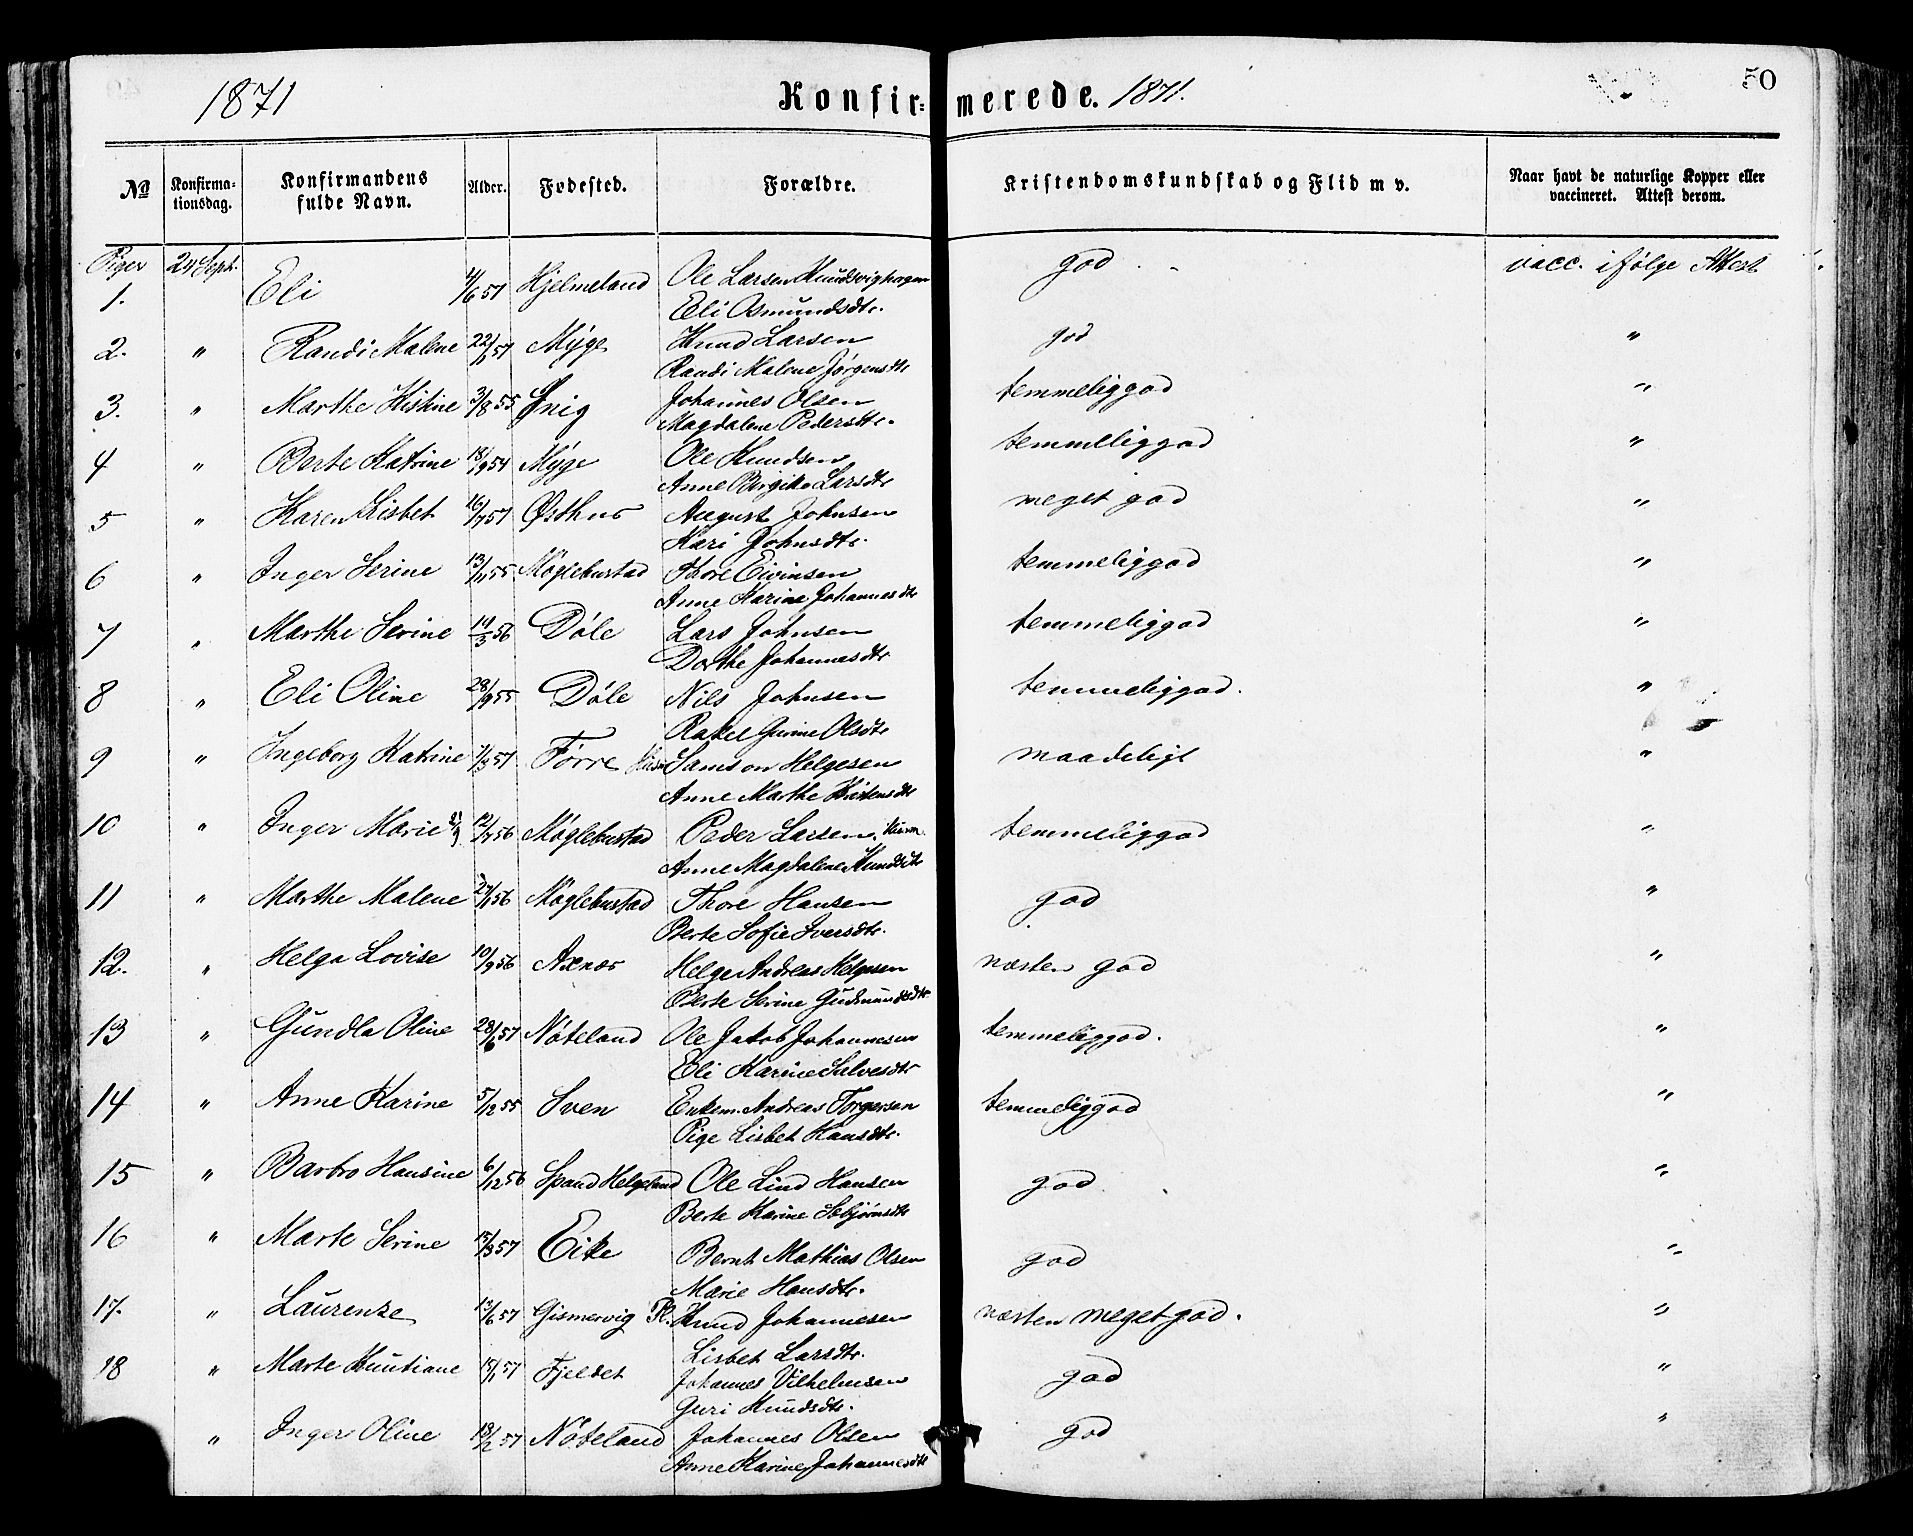 1871 Konfirmerede. 1871. 50
No Konfirmationsdag. Konfirmandens fulde Navn. Alder. Fødested. Forældre. Kristendomskundskab og Flid m v. Naar havt de naturlige Kopper eller vaccineret. Attest derom.
Piger 24 Sept.
1. Eli 4/6 57 Hjelmeland Ole Larsen god vacc. ifølge Attest
Eli Osmundsdtr.
2. " Randi Malene 22/1 57 Myge Knud Larsen god "
Randi Malene Jørgensdtr
3. " Marthe Kistine 3/8 55 Johannes Olsen temmelig god "
Magdalene Pedersdtr.
4 " Berte Katrine 18/9 54 Myge Ole Knudsen temmelig god "
Anne Birgitte Larsdtr
5 " Karen Lisbet 16/7 57 Østhus August Johnsen meget god "
Kari Johnsdtr.
6 " Inger Serine 13/11 55 Møglebustad Thore Eivinsen temmelig god "
Anne Karine Johannesdtr
7 " Marthe Serine 11/3 56 Døle Lars Johnsen temmelig god "
Dorthe Johannesdtr
8 " Eli Oline 28/9 55 Døle Nils Johnsen temmelig god. "
Rakel Gurine Olsdtr
9 " Ingeborg Katrine 57 Førre Samson Helgesen maadeligt "
Anne Marthe
10 " Inger Marie 12/7 56 Møglebustad Peder Larsen temmelig god "
Anne Magdalene Knudsdtr
11 " Marthe Malene 56 Møglebustad Thore Hansen god "
Berte Sofie Iversdtr.
12. " Helga Lovise 10/9 56 Axnæs Helge Andreas Helgesen næsten god "
Berte Serine Gudmundsdtr
13 " Gundla Oline 28/6 57 Nøteland Ole Jakob Johannesen temmelig god. "
Eli Karine Salvesdtr
14 " Anne Karine 5/12 55 Sven Enkem. Andreas Torgersen temmelig god "
Pige Lisbet Hansdtr.
15 " Barbro Hansine 6/12 56 Spand Helgeland Ole Lind Hansen god "
Berte Karine Sebjørnsdtr
16 " Marte Serine 15/3 57 Eike Bernt Mathias Olsen god "
Marie Hansdtr.
17. " Laurense 13/6 57 Gismervig Pl. Knud Johannesen næsten meget god. "
Lisbet Larsdtr.
18 " Marte Knutiane 15/1 57 Fjeldet Johannes Vilhelmsen god "
Guri Knudsdtr.
" Inger Oline 18/2 57 Nøteland Johannes Olsen god "
Anne Karine Johannesdtr